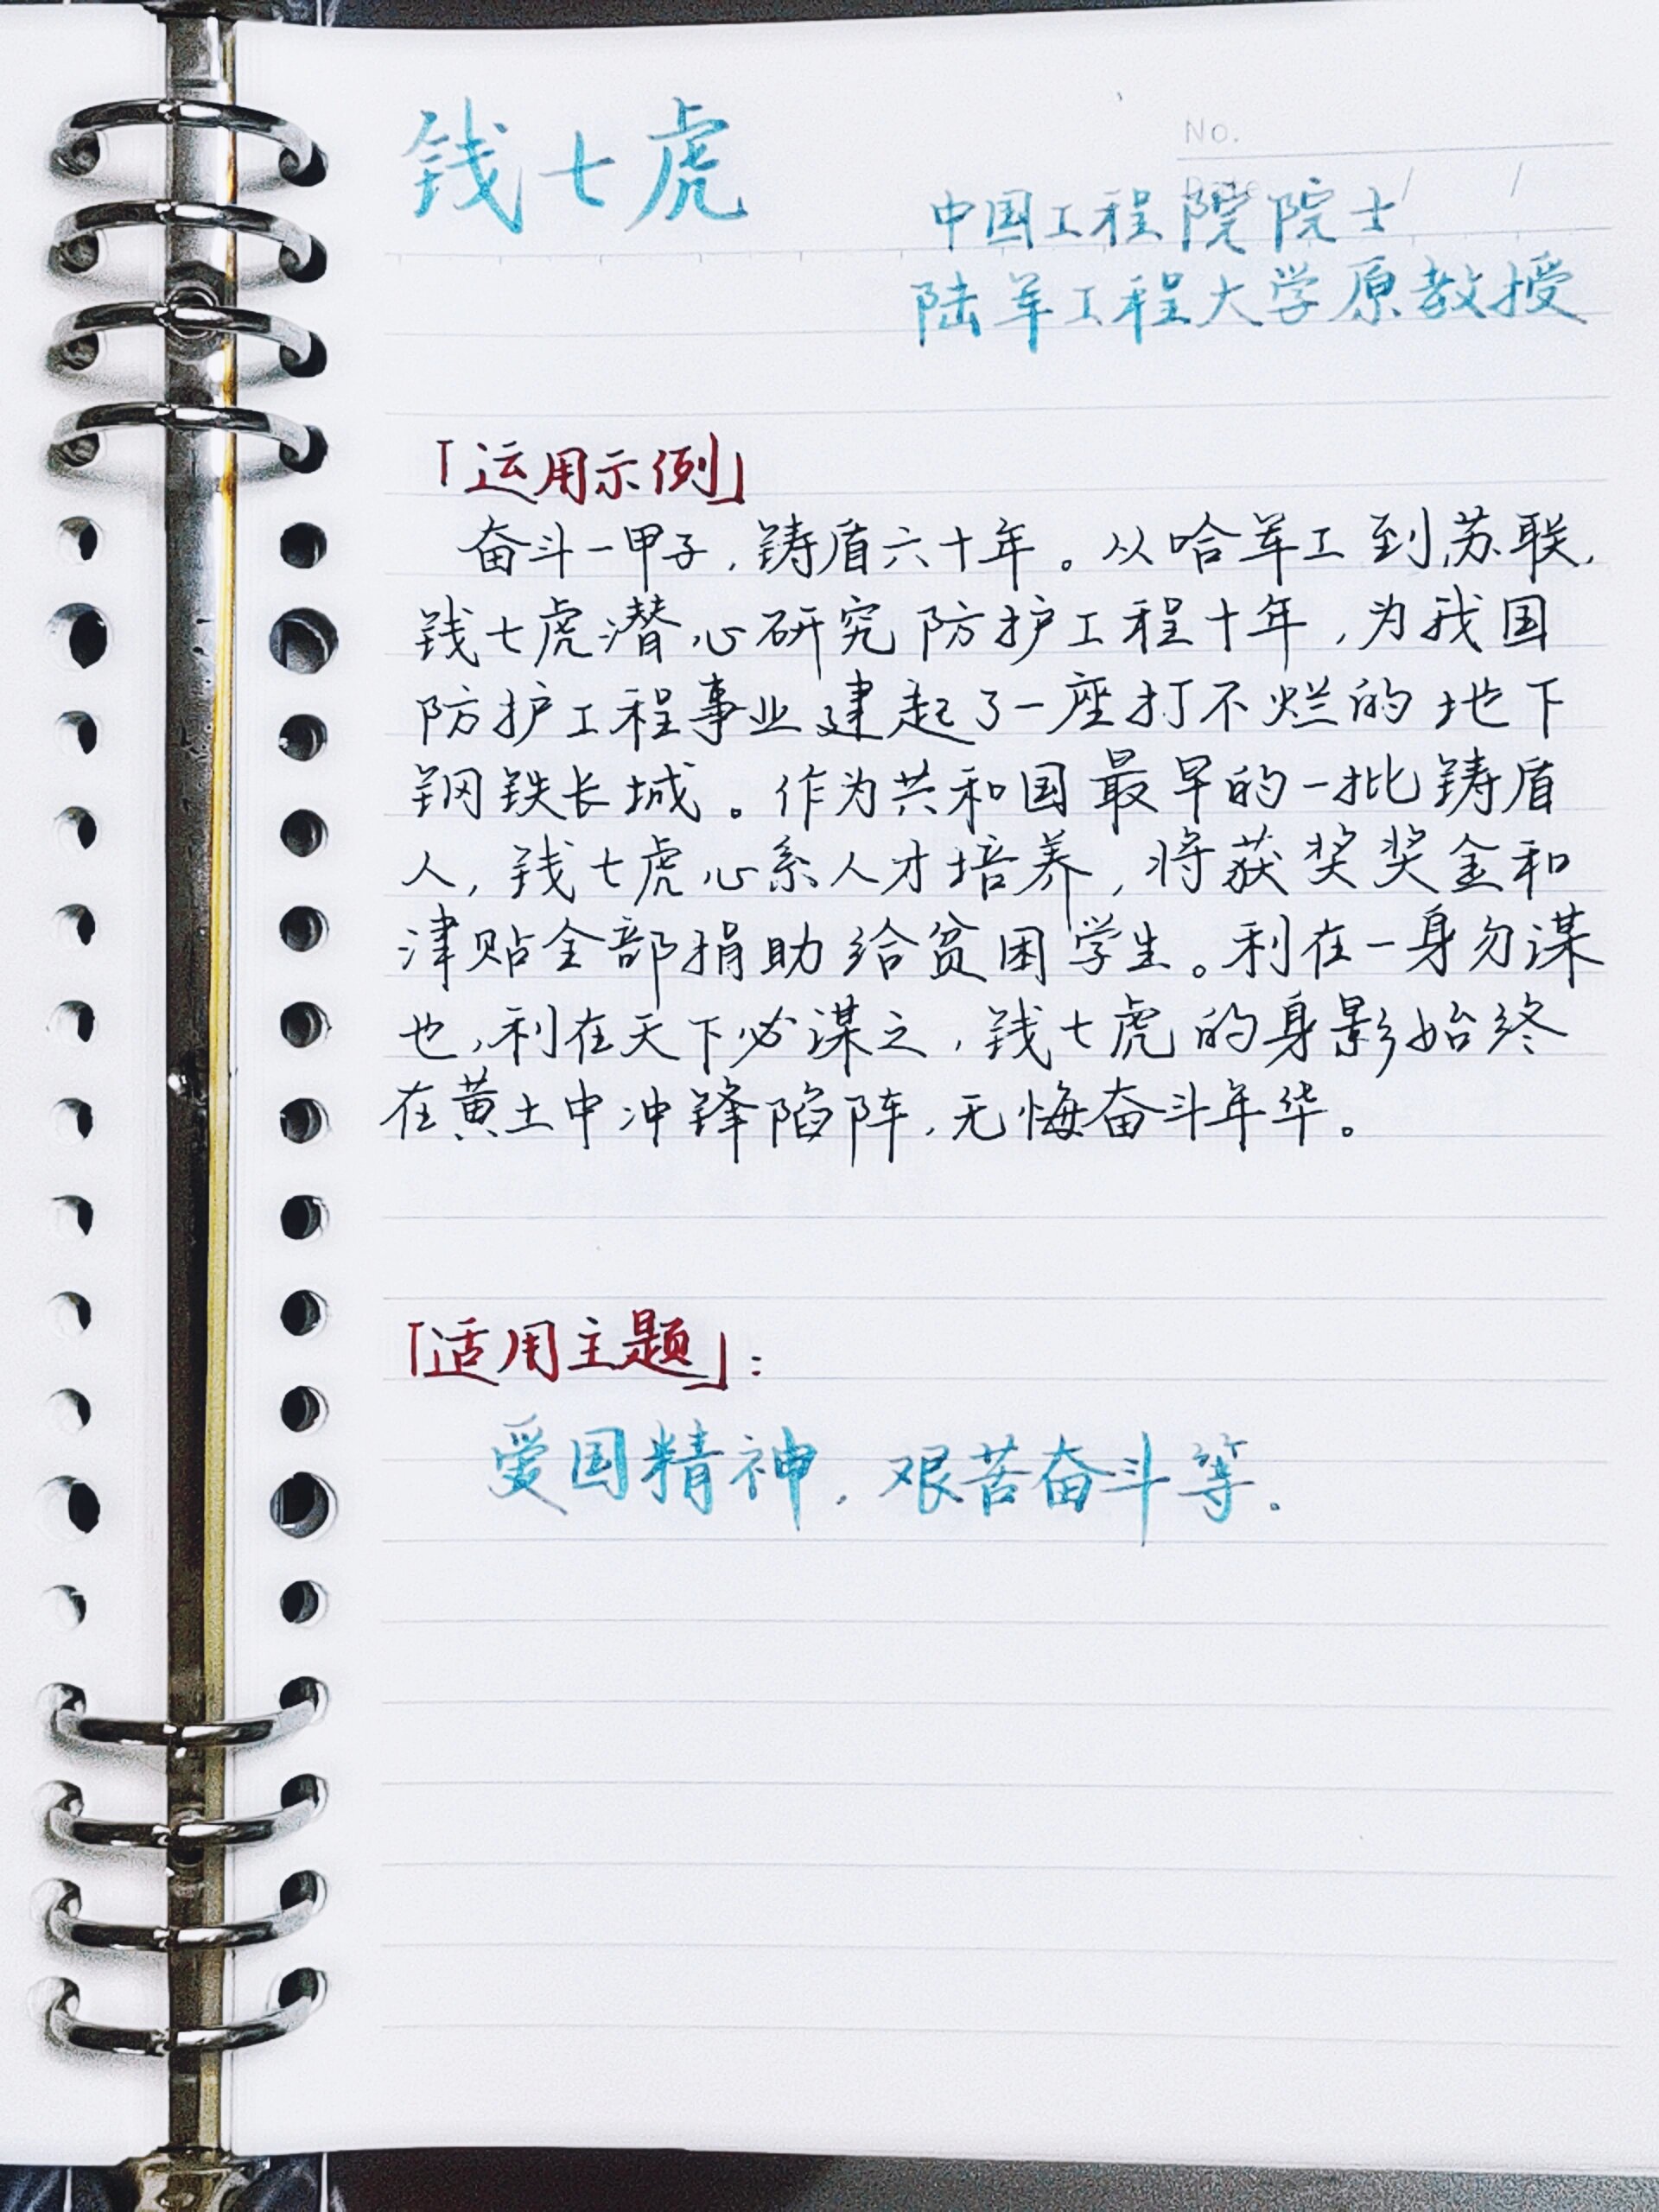 No.
Date / /
钱七虎
中国工程院院士
陆军工程大学原教授
「运用示例」
奋斗一甲子,铸盾六十年。从哈军工到苏联,
钱七虎潜心研究防护工程十年,为我国
防护工程事业建起了一座打不烂的地下
钢铁长城。作为共和国最早的一批铸盾
人,钱七虎心系人才培养,将获奖奖金和
津贴全部捐助给贫困学生。利在一身勿谋
也,利在天下必谋之,钱七虎的身影始终
在黄土中冲锋陷阵,无悔奋斗年华。
「适用主题」:
爱国精神,艰苦奋斗等.